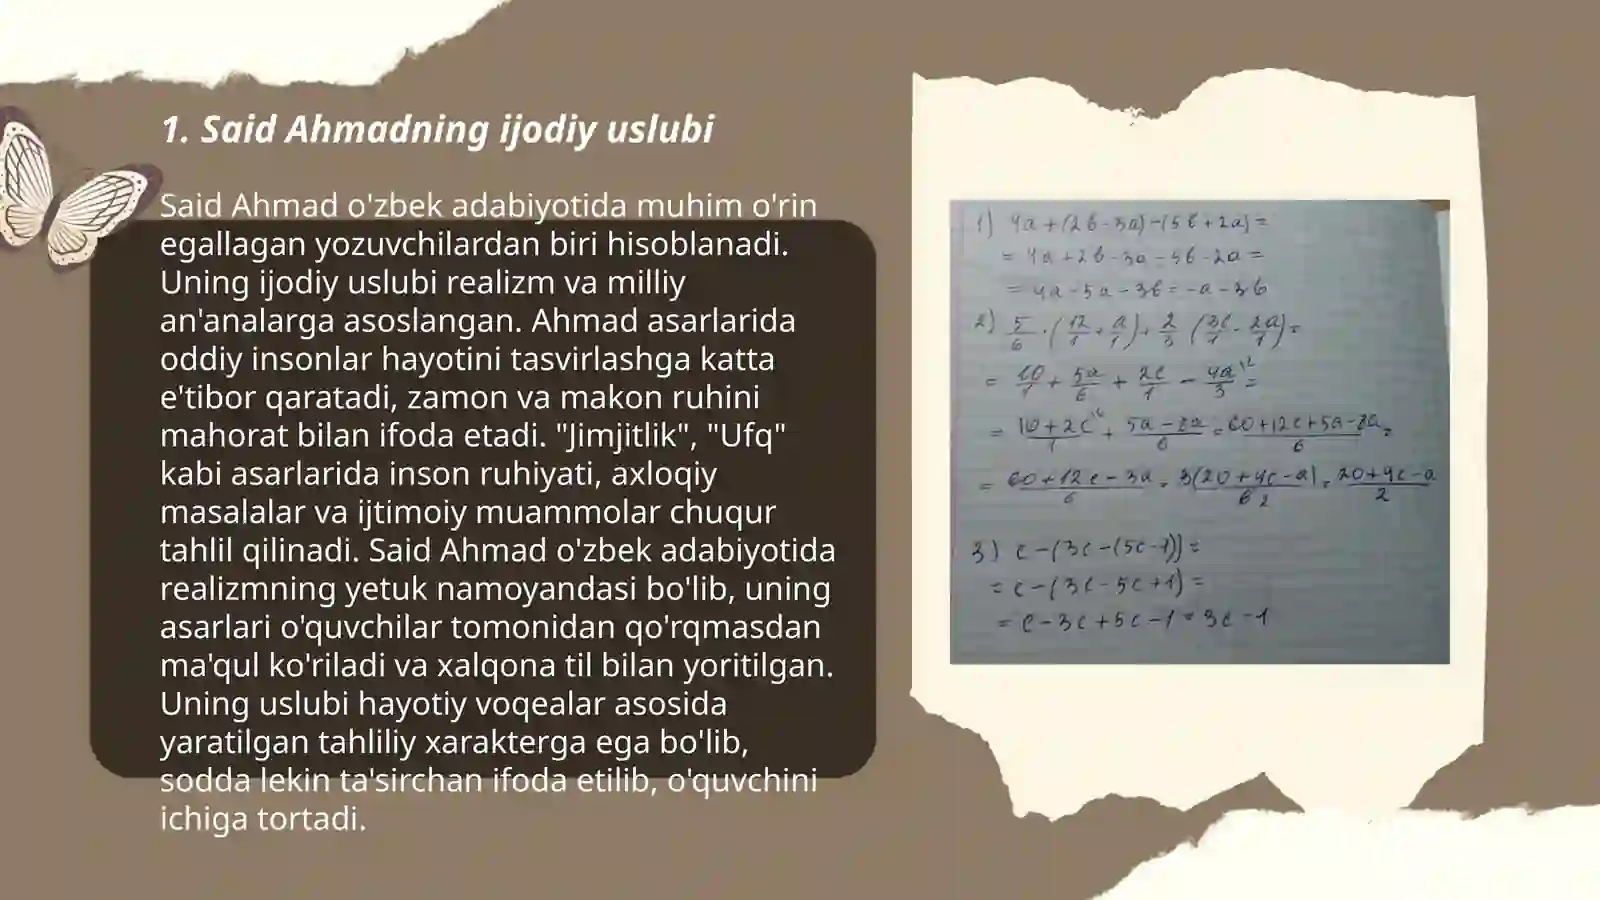 1. Said Ahmadning ijodiy uslubi
Said Ahmad o'zbek adabiyotida muhim o'rin
egallagan yozuvchilardan biri hisoblanadi.
Uning ijodiy uslubi realizm va milliy
an'analarga asoslangan. Ahmad asarlarida
oddiy insonlar hayotini tasvirlashga katta
e'tibor qaratadi, zamon va makon ruhini
mahorat bilan ifoda etadi. "Jimjitlik", "Ufq"
kabi asarlarida inson ruhiyati, axloqiy
masalalar va ijtimoiy muammolar chuqur
tahlil qilinadi. Said Ahmad o'zbek adabiyotida
realizmning yetuk namoyandasi bo'lib, uning
asarlari o'quvchilar tomonidan qo'rqmasdan
ma'qul ko'riladi va xalqona til bilan yoritilgan.
Uning uslubi hayotiy voqealar asosida
yaratilgan tahliliy xarakterga ega bo'lib,
sodda lekin ta'sirchan ifoda etilib, o'quvchini
ichiga tortadi.
1) 4a+(2b-3a)-(5b+2a)=
= 4a+2b-3a-5b-2a=
= 4a-5a-3b=-a-3b
2) 5/6·(12/1+a/1)+2/3(3c/1-2a/1)=
= 10/1+5a/6+2c/1-4a/3=
= 10+2c/1+5a-8a/6=60+12c+5a-8a/6=
= 60+12c-3a/6=3(20+4c-a)/6 2=20+4c-a/2
3) c-(3c-(5c-1))=
= c-(3c-5c+1)=
= c-3c+5c-1=3c-1